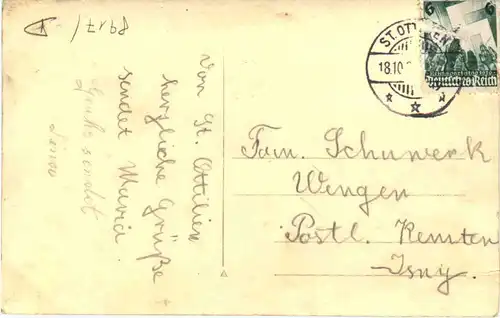 8917/
Von St. Ottilien
herzliche Grüße
sendet Maria
Gruß sendet
ST. OTT
18.10.
6 6
Deutsches Reich
Fam. Schuwerk
Wengen
Postl. Kemten
Isny.